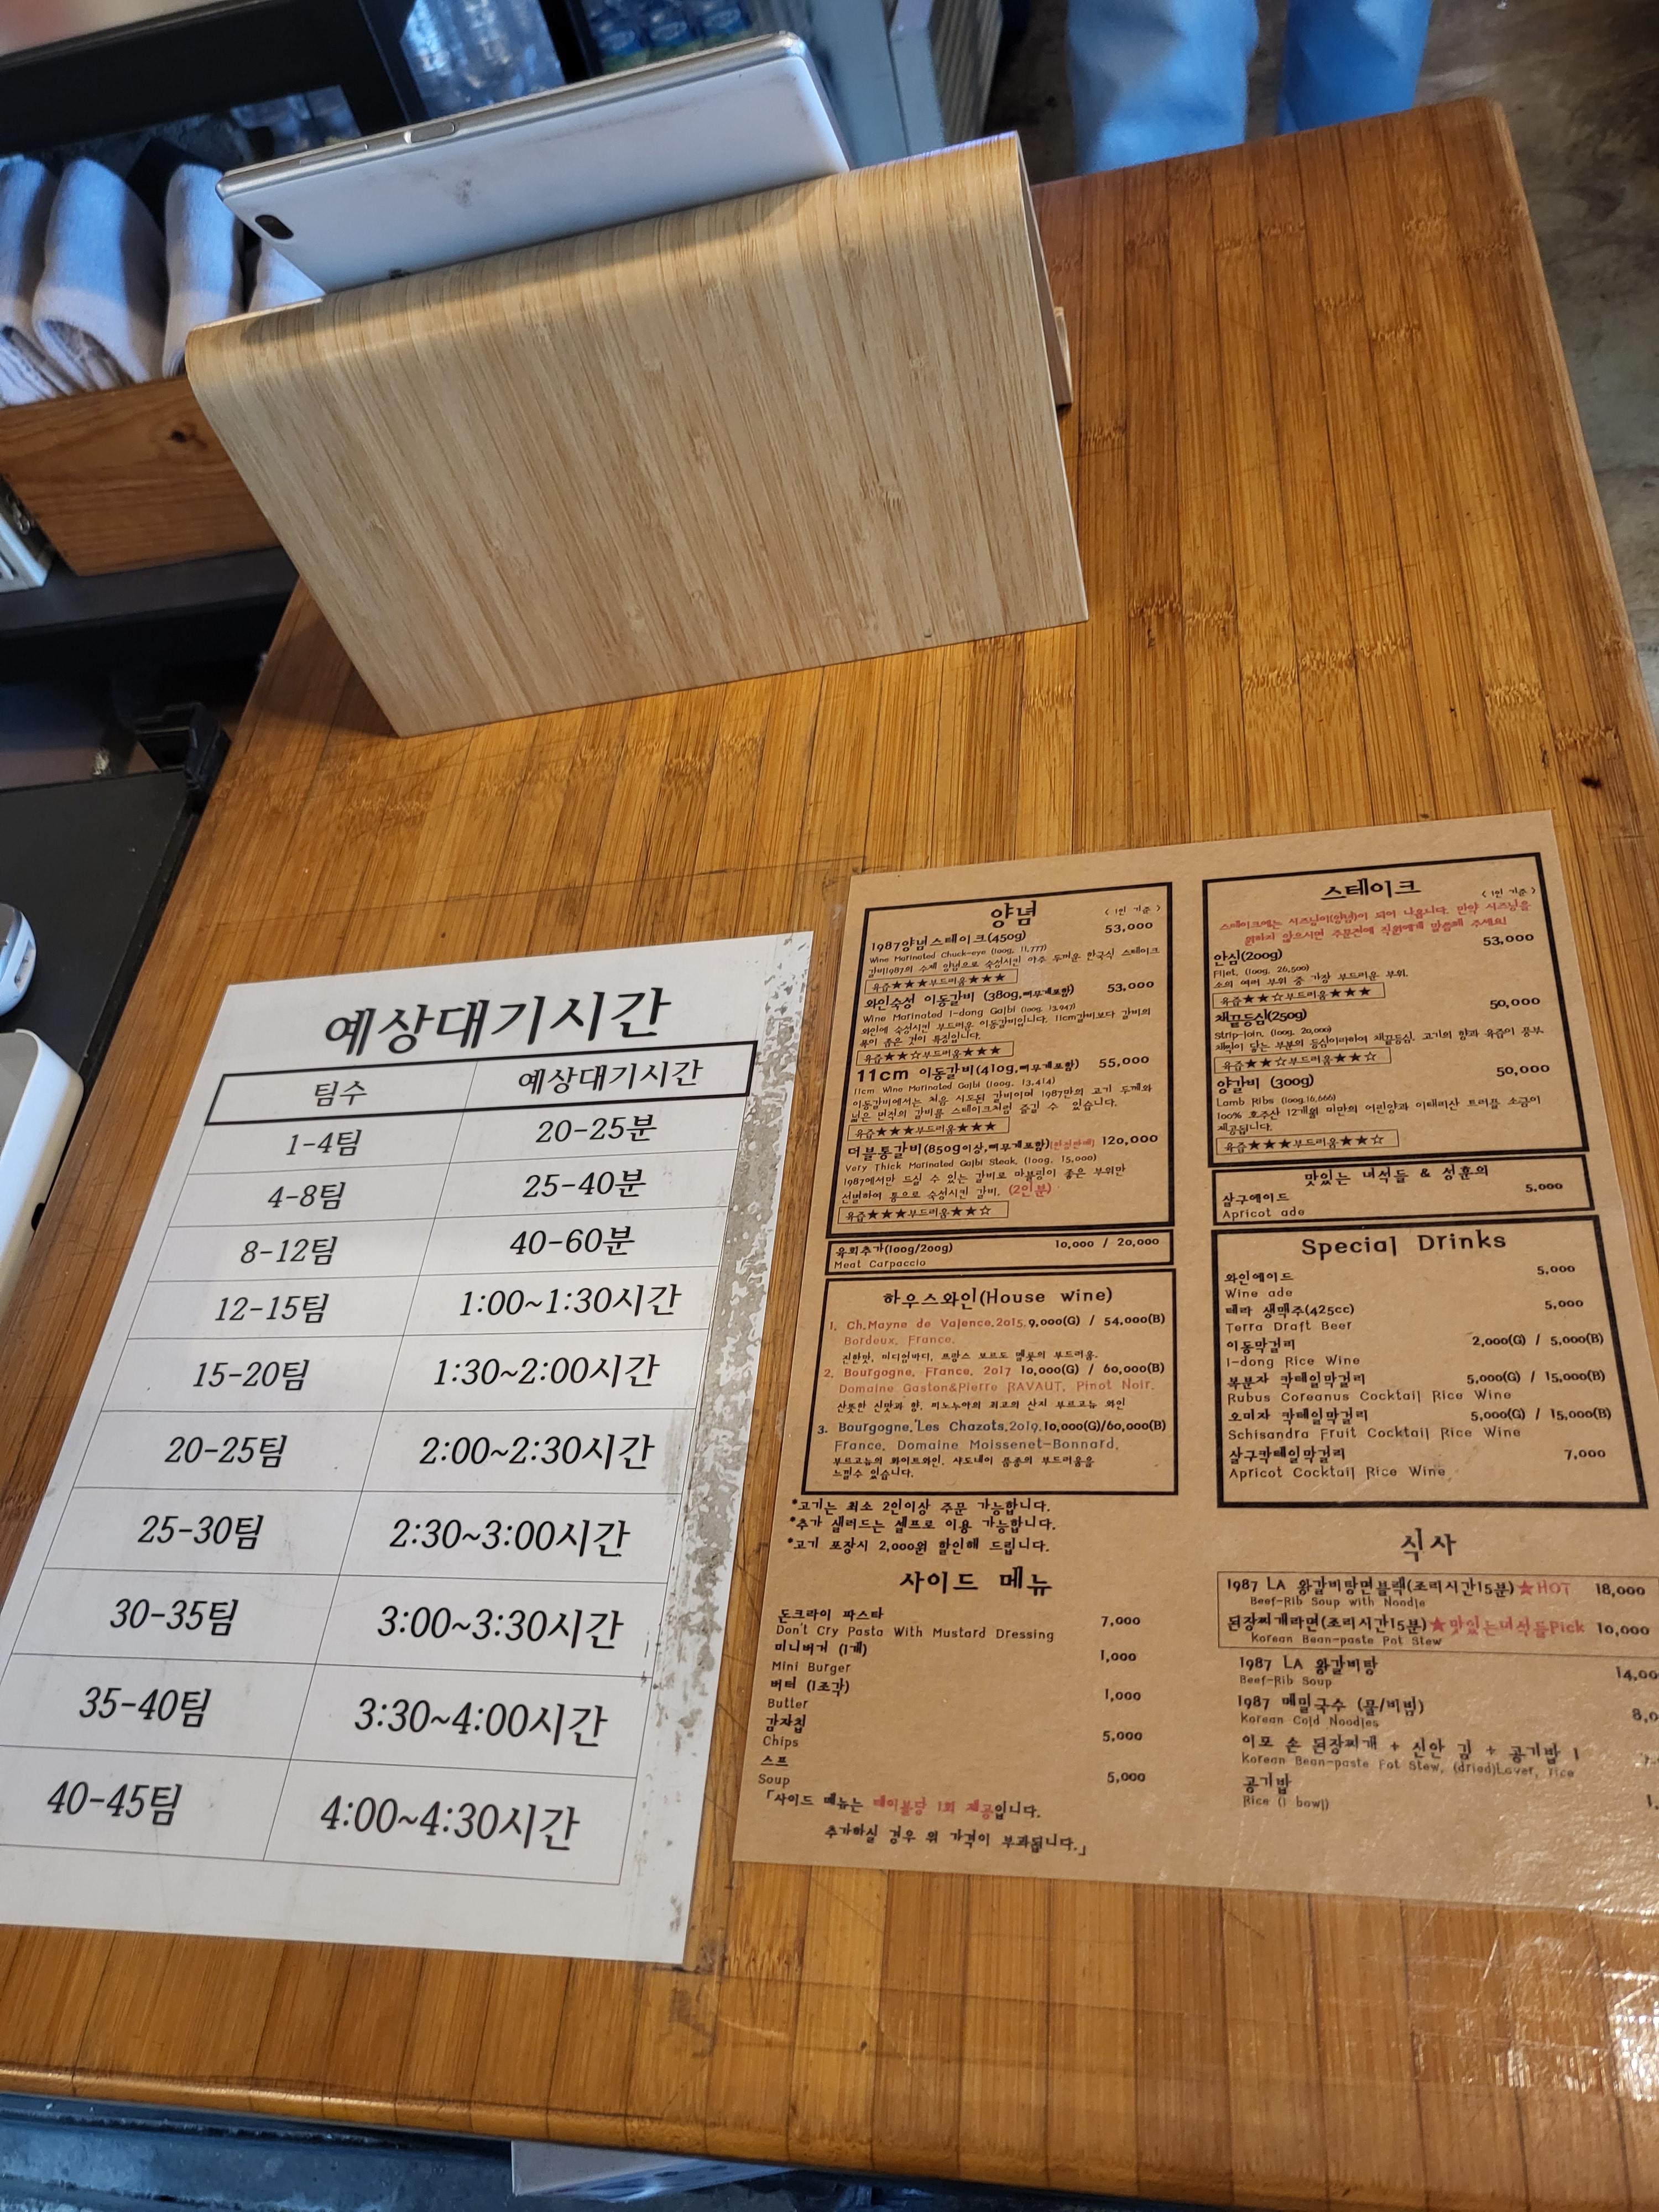 예상대기시간
팀수 예상대기시간
1-4팀 20-25분
4-8팀 25-40분
8-12팀 40-60분
12-15팀 1:00~1:30시간
15-20팀 1:30~2:00시간
20-25팀 2:00~2:30시간
25-30팀 2:30~3:00시간
30-35팀 3:00~3:30시간
35-40팀 3:30~4:00시간
40-45팀 4:00~4:30시간
양념
<1인 기준>
1987양념스테이크(450g) 53,000
Wine Marinated Chuck-eye (100g, 11,777)
갈비1987의 수제 양념으로 숙성시킨 아주 두꺼운 한국식 스테이크
육즙★★★부드러움★★★
와인숙성 이동갈비 (380g,뼈무게포함) 53,000
Wine Marinated I-dong Galbi (100g, 13,947)
와인에 숙성시킨 부드러운 이동갈비입니다. 11cm갈비보다 갈비의
폭이 좁은 것이 특징입니다.
육즙★★☆부드러움★★★
11cm 이동갈비(410g,뼈무게포함) 55,000
11cm Wine Marinated Galbi (100g, 13,414)
이동갈비에서는 처음 시도된 갈비이며 1987만의 고기 두께와
넓은 면적의 갈비를 스테이크처럼 즐길 수 있습니다.
육즙★★★부드러움★★★
더블통갈비(850g이상,뼈무게포함)(한정판매) 120,000
Very Thick Marinated Galbi Steak, (100g, 15,000)
1987에서만 드실 수 있는 갈비로 마블링이 좋은 부위만
선별하여 통으로 숙성시킨 갈비, (2인분)
육즙★★★부드러움★★☆
육회추가(100g/200g) 10,000 / 20,000
Meat Carpaccio
하우스와인(House wine)
1. Ch.Mayne de Valence,2015, 9,000(G) / 54,000(B)
Bordeux, France,
진한맛, 미디엄바디, 프랑스 보르도 멜롯의 부드러움.
2. Bourgogne, France, 2017 10,000(G) / 60,000(B)
Domaine Gaston&Pierre RAVAUT, Pinot Noir,
산뜻한 신맛과 향, 피노누아의 최고의 산지 부르고뉴 와인
3. Bourgogne,'Les Chazots,2019, 10,000(G)/60,000(B)
France, Domaine Moissenet-Bonnard,
부르고뉴의 화이트와인, 샤도네이 품종의 부드러움을
느낄수 있습니다.
*고기는 최소 2인이상 주문 가능합니다.
*추가 샐러드는 셀프로 이용 가능합니다.
*고기 포장시 2,000원 할인해 드립니다.
사이드 메뉴
돈크라이 파스타 7,000
Don't Cry Pasta With Mustard Dressing
미니버거 (1개) 1,000
Mini Burger
버터 (1조각) 1,000
Butter
감자칩 5,000
Chips
스프 5,000
Soup
「사이드 메뉴는 테이블당 1회 제공입니다.
추가하실 경우 위 가격이 부과됩니다.」
스테이크
<1인 기준>
스테이크에는 시즈닝이(양념)이 되어 나옵니다. 만약 시즈닝을
원하지 않으시면 주문전에 직원에게 말씀해 주세요!
안심(200g) 53,000
Filet, (100g, 26,500)
소의 여러 부위 중 가장 부드러운 부위.
육즙★★☆부드러움★★★
채끝등심(250g) 50,000
Strip-loin, (100g, 20,000)
채찍이 닿는 부분의 등심이라하여 채끝등심. 고기의 향과 육즙이 풍부
육즙★★☆부드러움★★☆
양갈비 (300g) 50,000
Lamb Ribs (100g,16,666)
100% 호주산 12개월 미만의 어린양과 이태리산 트러플 소금이
제공됩니다.
육즙★★★부드러움★★☆
맛있는 녀석들 & 성훈의
살구에이드 5,000
Apricot ade
Special Drinks
와인에이드 5,000
Wine ade
테라 생맥주(425cc) 5,000
Terra Draft Beer
이동막걸리 2,000(G) / 5,000(B)
I-dong Rice Wine
복분자 칵테일막걸리 5,000(G) / 15,000(B)
Rubus Coreanus Cocktail Rice Wine
오미자 칵테일막걸리 5,000(G) / 15,000(B)
Schisandra Fruit Cocktail Rice Wine
살구칵테일막걸리 7,000
Apricot Cocktail Rice Wine
식사
1987 LA 왕갈비탕면블랙(조리시간15분)★HOT 18,000
Beef-Rib Soup with Noodle
된장찌개라면(조리시간15분)★맛있는녀석들Pick 10,000
Korean Bean-paste Pot Stew
1987 LA 왕갈비탕
Beef-Rib Soup
1987 메밀국수 (물/비빔)
Korean Cold Noodles
이모 손 된장찌개 + 신안 김 + 공기밥 1
Korean Bean-paste Pot Stew, (dried)Laver, rice
공기밥
Rice (1 bowl)